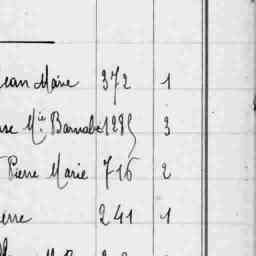 Jean Marie 372 1
Mie Barnabé 1285 3
Pierre Marie 716 2
241 1